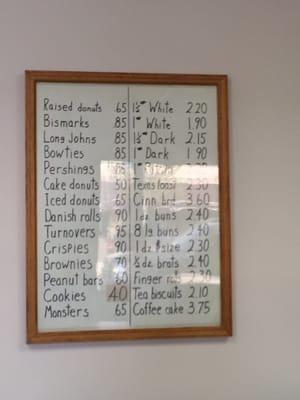 Raised donuts .65
Bismarks .85
Long Johns .85
Bowties .85
Pershings .85
Cake donuts 50
Iced donuts 65
Danish rolls 90
Turnovers 95
Crispies 90
Brownies 70
Peanut bars 60
Cookies 40
Monsters 65
1½" White 2.20
1" White 1.90
1½" Dark 2.15
1" Dark 1 90
1"
Texas toast 2.30
Cinn brd 3.60
1 dz buns 2.40
8 lg buns 2.40
1 dz $ size 2.30
½ dz brats 2.40
Finger rolls 2.30
Tea biscuits 2.10
Coffee cake 3.75